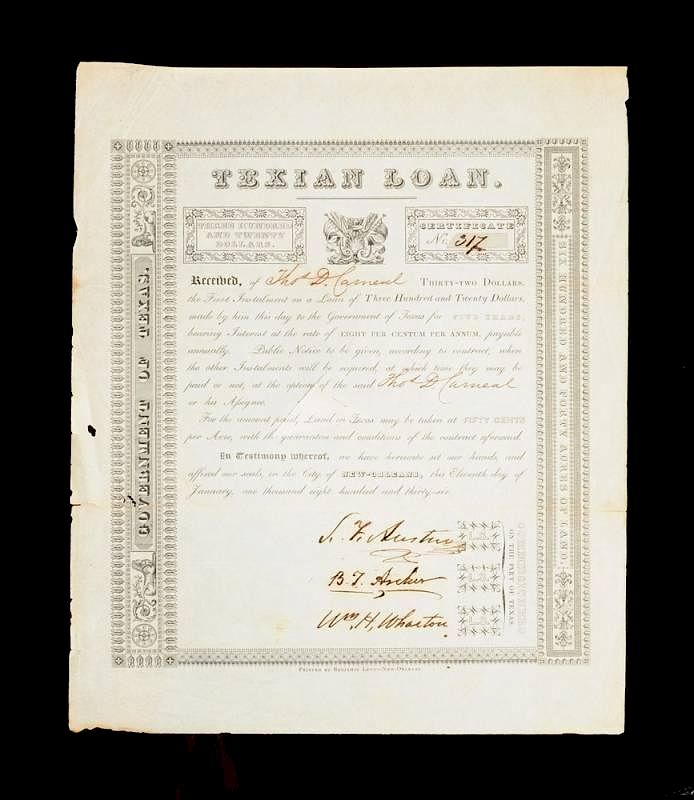 TEXIAN LOAN.
THREE HUNDRED
AND TWENTY
DOLLARS.
CERTIFICATE
No. 317
Received, of Thos D. Carneal THIRTY-TWO DOLLARS,
the First Instalment on a Loan of Three Hundred and Twenty Dollars,
made by him this day to the Government of Texas for FIVE YEARS,
bearing Interest at the rate of EIGHT PER CENTUM PER ANNUM, payable
annually. Public Notice to be given, according to contract, when
the other Instalments will be required, at which time they may be
paid or not, at the option of the said Thos D. Carneal
or his Assignee.
For the amount paid, Land in Texas may be taken at FIFTY CENTS
per Acre, with the guarantees and conditions of the contract aforesaid.
In Testimony whereof, we have hereunto set our hands, and
affixed our seals, in the City of NEW-ORLEANS, this Eleventh day of
January, one thousand eight hundred and thirty-six.
S. F. Austin
B. T. Archer
Wm. H. Wharton
L.S.
L.S.
L.S.
COMMISSIONERS
ON THE PART OF TEXAS
GOVERNMENT OF TEXAS
SIX HUNDRED AND FORTY ACRES OF LAND.
PRINTED BY BENJAMIN LEVY—NEW-ORLEANS